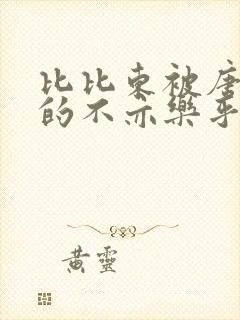 比比東被唐
的不亦樂乎
黃靈